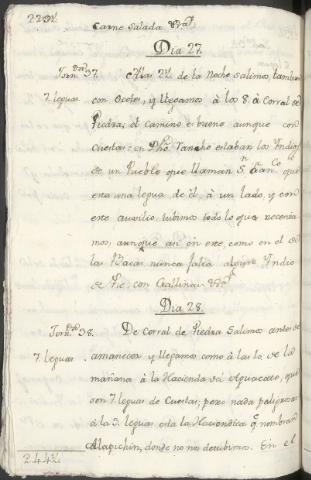 carne salada &ra.
Dia 27.
Jorn.da 37. A las 2½ de la Noche salimos, tambien
7. leguas con Ocotes, y llegamos à los 8. à Corral de
Piedra, el camino es bueno aunque con
Cuestas: en Dho. Rancho estaban los Yndios
de un Pueblo que llaman S.n Fran.co que
esta una legua de él, à un lado, y con
este auxilio tubimos todo lo que necesita
mos, aunque an en este, como en el de
las Bacas nunca falta algun Yndio
de Pie, con Gallinas &ra.
Dia 28.
Jorn.da 38. De Corral de Piedra Salimos antes de
7. leguas. amanecer y llegamos como à las 12 de la
mañana à la Hacienda del Aguacate, que
son 7. leguas de Cuestas; pero nada peligrosas
à la 3. legua esta la Haciendita q.e nombran
Mapichin, donde no nos detubimos. En el